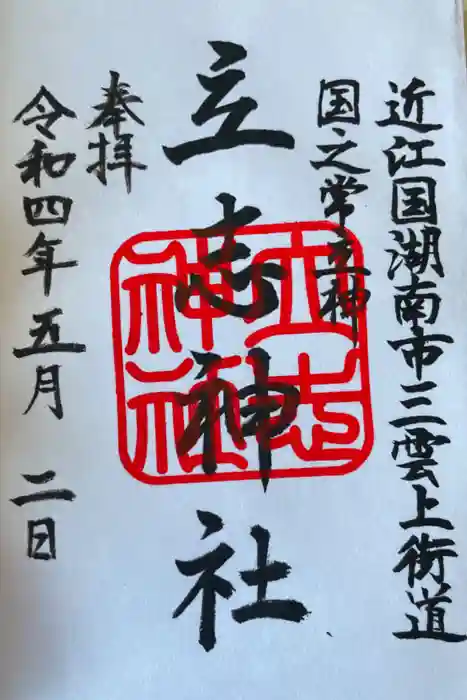 近江国湖南市三雲上街道
国之常立神
立志神社
立志神社
奉拝
令和四年五月二日